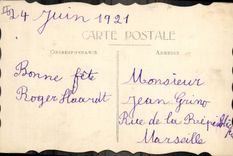 24 Juin 1921
CARTE POSTALE
CORRESPONDANCE
ADRESSE
Bonne fête
Roger Haardt
Monsieur
Jean Grino
Rue de la République
Marseille